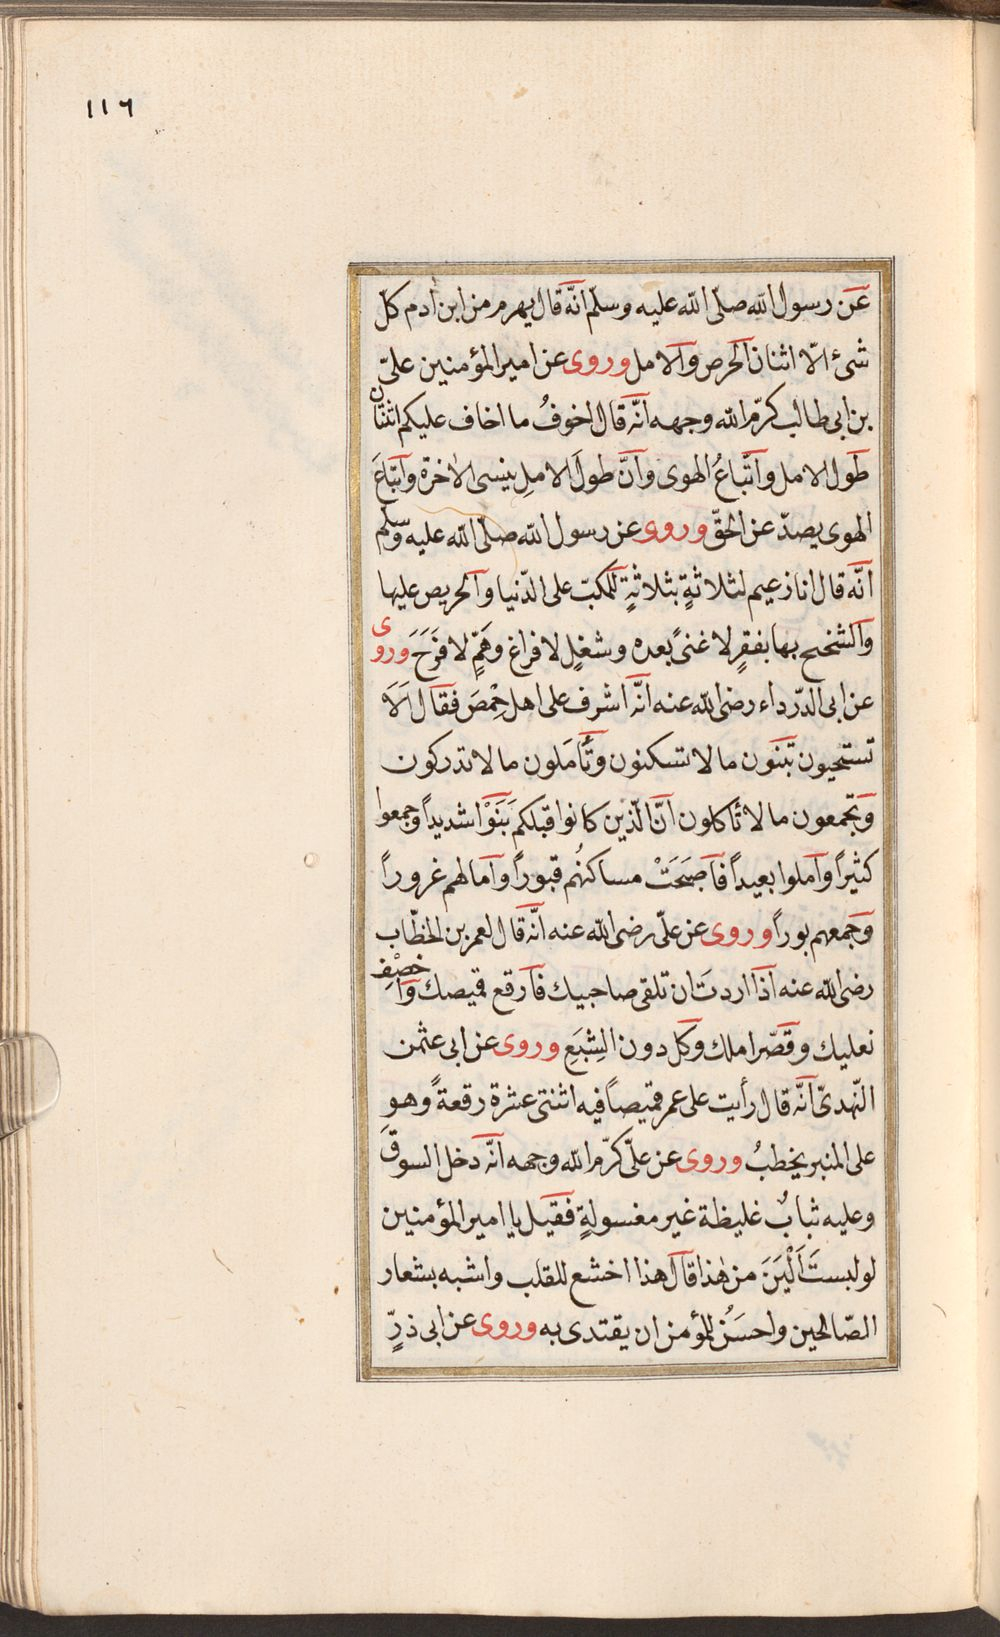 ١١٦
عن رسول الله صلّى الله عليه وسلّم انّه قال يهرم من ابن اٰدم كلّ
شئ الّا اثنان الحرص والامل وروى عن امير المؤمنين علىّ
بن ابى طالب كرّم الله وجهه انّه قال اخوفُ ما اخاف عليكم اثنتان
طول الامل واتّباعُ الهوى وانّ طولَ الاملِ ينسى الاٰخرة واتّباعَ
الهوى يصدّ عن الحقّ وروى عن رسول الله صلّى الله عليه وسلّم
انّه قال انا زعيم لثلاثةٍ بثلاثةٍ للمكبّ على الدّنيا والحريص عليها
والشحيح بها بفقرٍ لا غنىً بعده وشغلٍ لا فراغ وهَمٍّ لا فَرَحَ وروى
عن ابى الدّرداء رضى الله عنه انّه اشرف على اهل حِمْصَ فقال اَلَا
تستحيون تبنون ما لا تسكنون وتأمَلون ما لا تدركون
وتجمعون ما لا تأكلون انّ الّذين كانوا قبلكم بَنَوْا شديداً وجمعوا
كثيراً واَملوا بعيداً فاَصبَحَتْ مساكنُهم قبوراً واٰمالهم غروراً
وجَمعهم بوراً وروى عن علىّ رضى الله عنه انّه قال لعمر بن الخطّاب
رضى الله عنه اذا اردتَ ان تلقى صاحبيك فارقع قميصك واخصِف
نعليك وقصّر املك وكل دون الشِبَعِ وروى عن ابى عثمن
النّهدىّ انّه قال رأيت على عمر قميصاً فيه اثنتى عشرة رقعةً وهو
على المنبر يخطبُ وروى عن علىّ كرّم الله وجهه انّه دخل السوقَ
وعليه ثيابٌ غليظة غير مغسولةٍ فقيل يا امير المؤمنين
لو لبستَ اَلْيَنَ من هٰذا قال هذا اخشع للقلب واشبه بشعار
الصّالحين واحسَنُ للمؤمن ان يقتدى به وروى عن ابى ذرٍّ